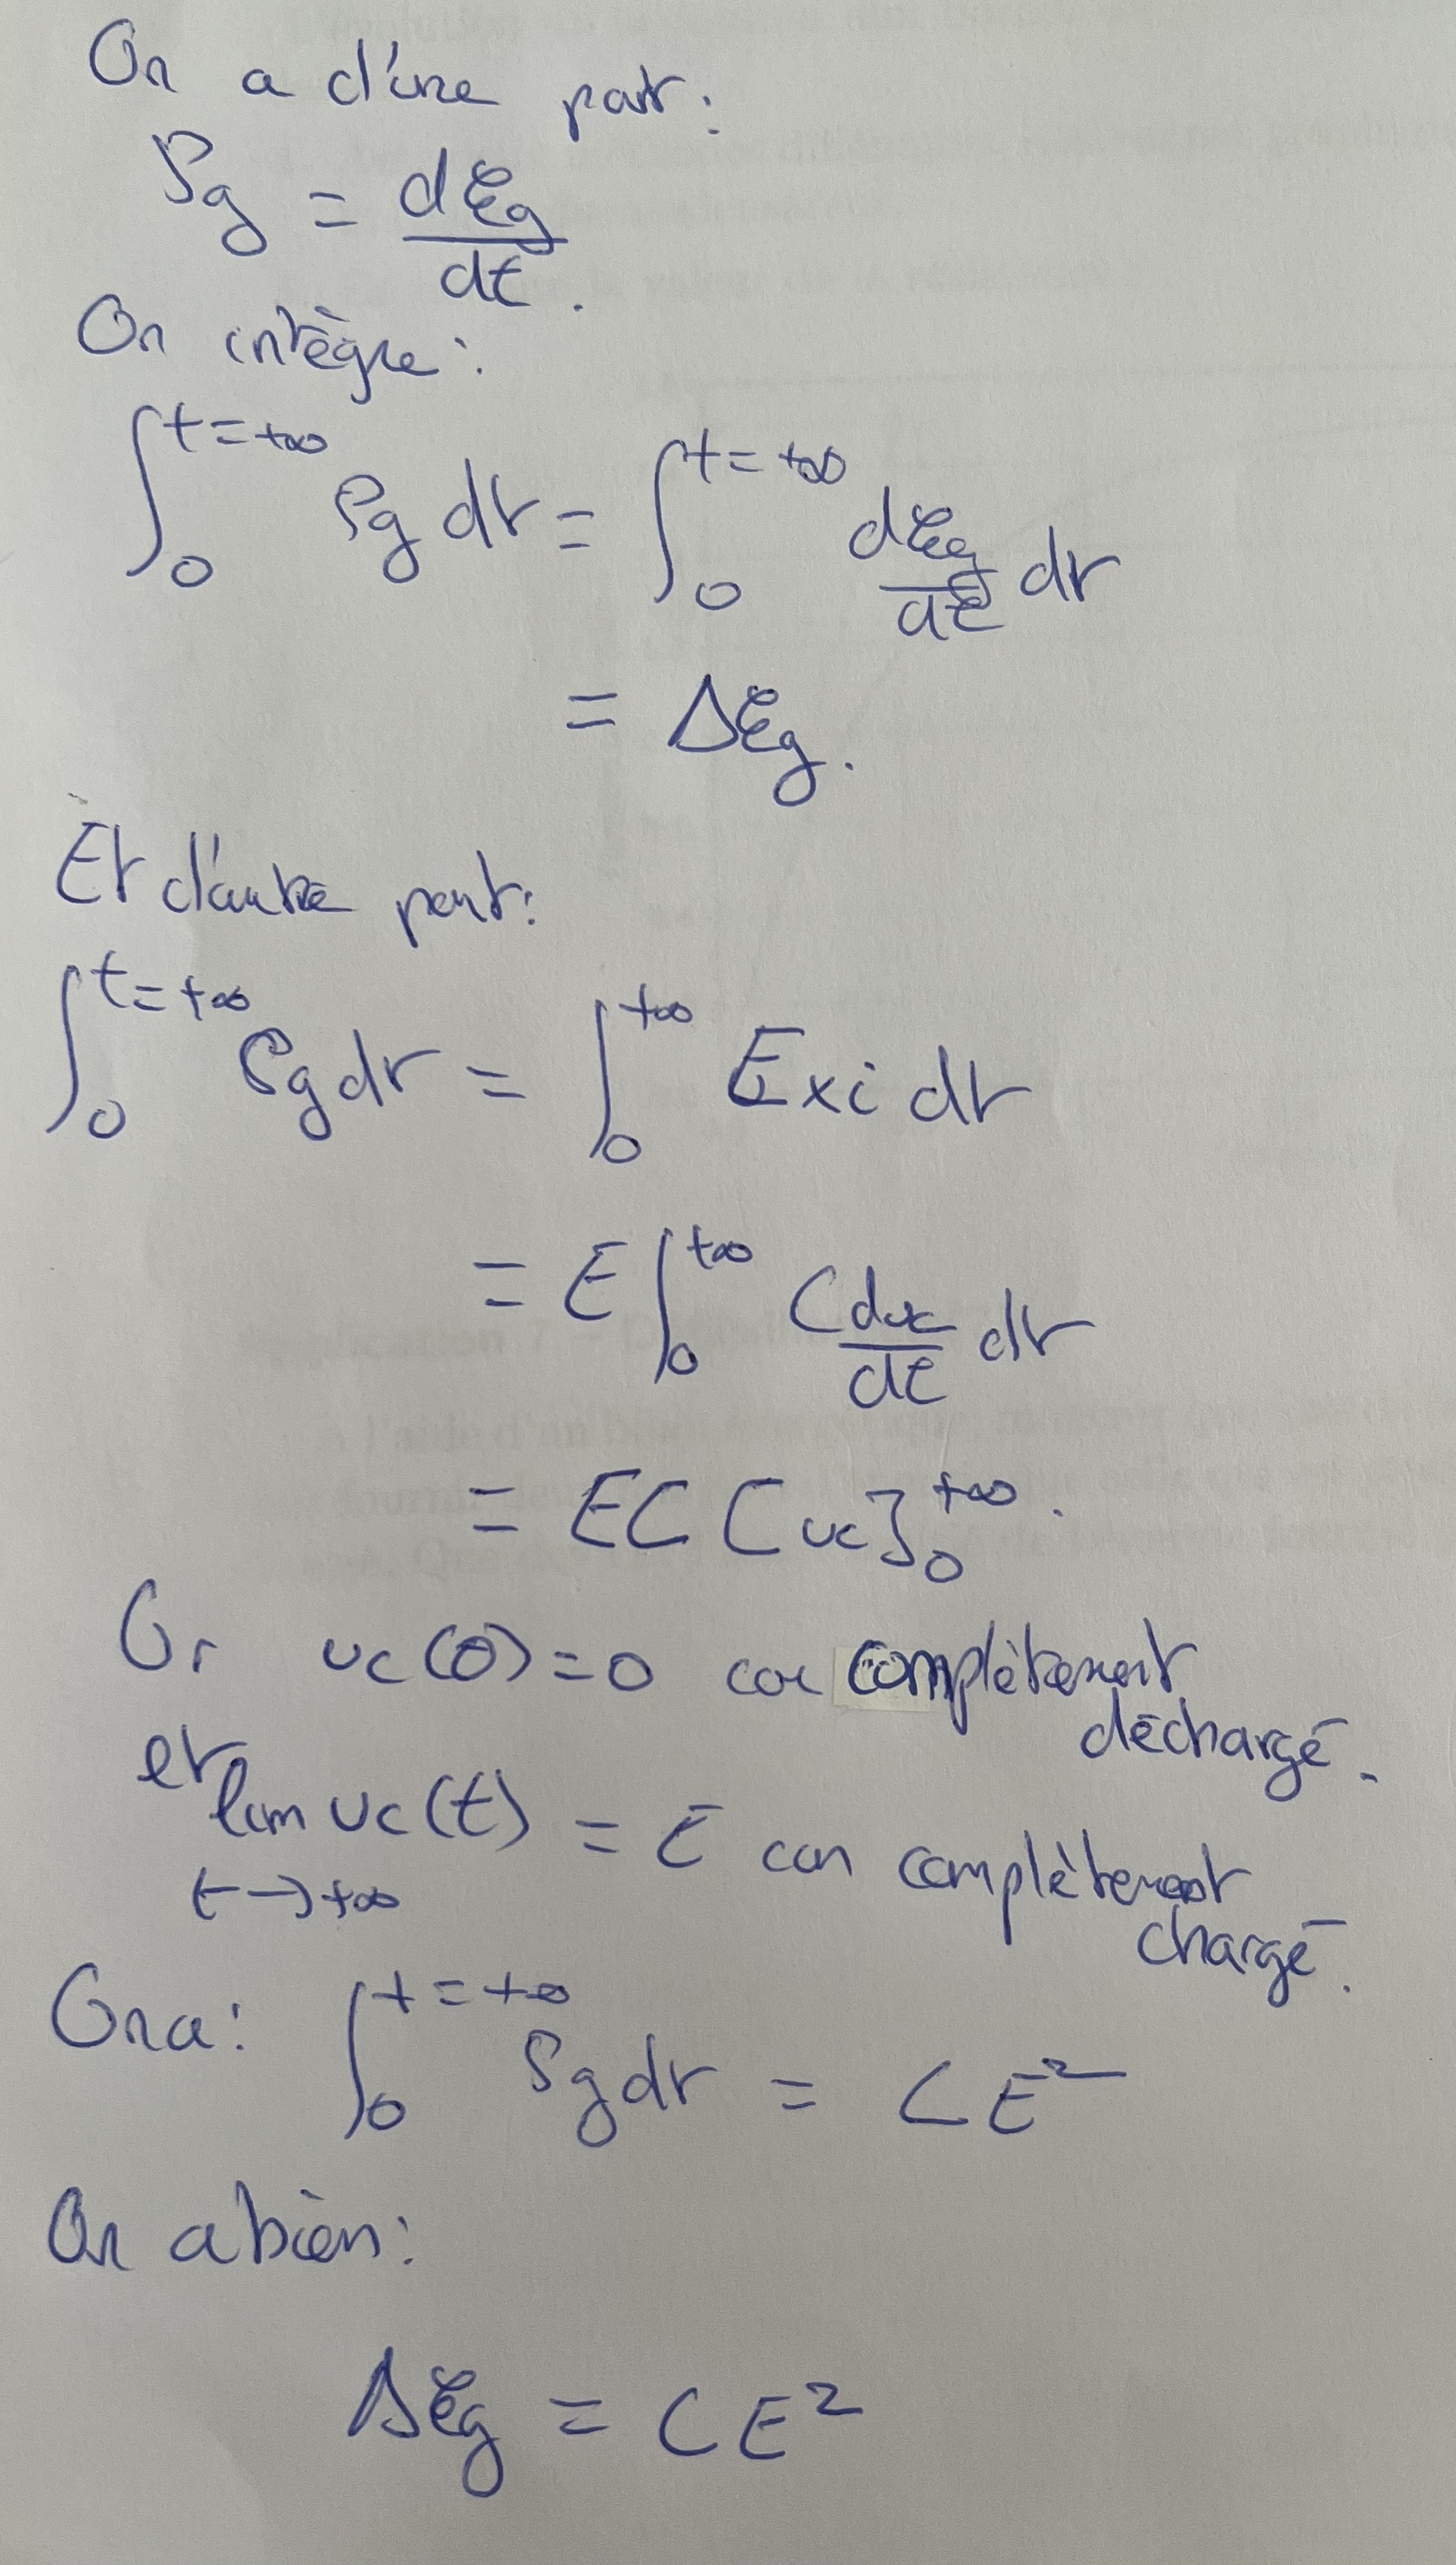 On a d'une part :
Pg = dEg/dt.
On intègre :
∫₀^{t=+∞} Pg dt = ∫₀^{t=+∞} dEg/dt dt
= ΔEg.
Et d'autre part :
∫₀^{t=+∞} Pg dt = ∫₀^{+∞} E×i dt
= E ∫₀^{+∞} C duc/dt dt
= EC [uc]₀^{+∞}.
Or uc(0) = 0 car complètement
déchargé.
et lim uc(t) = E car complètement
t→+∞
chargé.
On a : ∫₀^{t=+∞} Pg dt = CE²
On a bien :
ΔEg = CE²